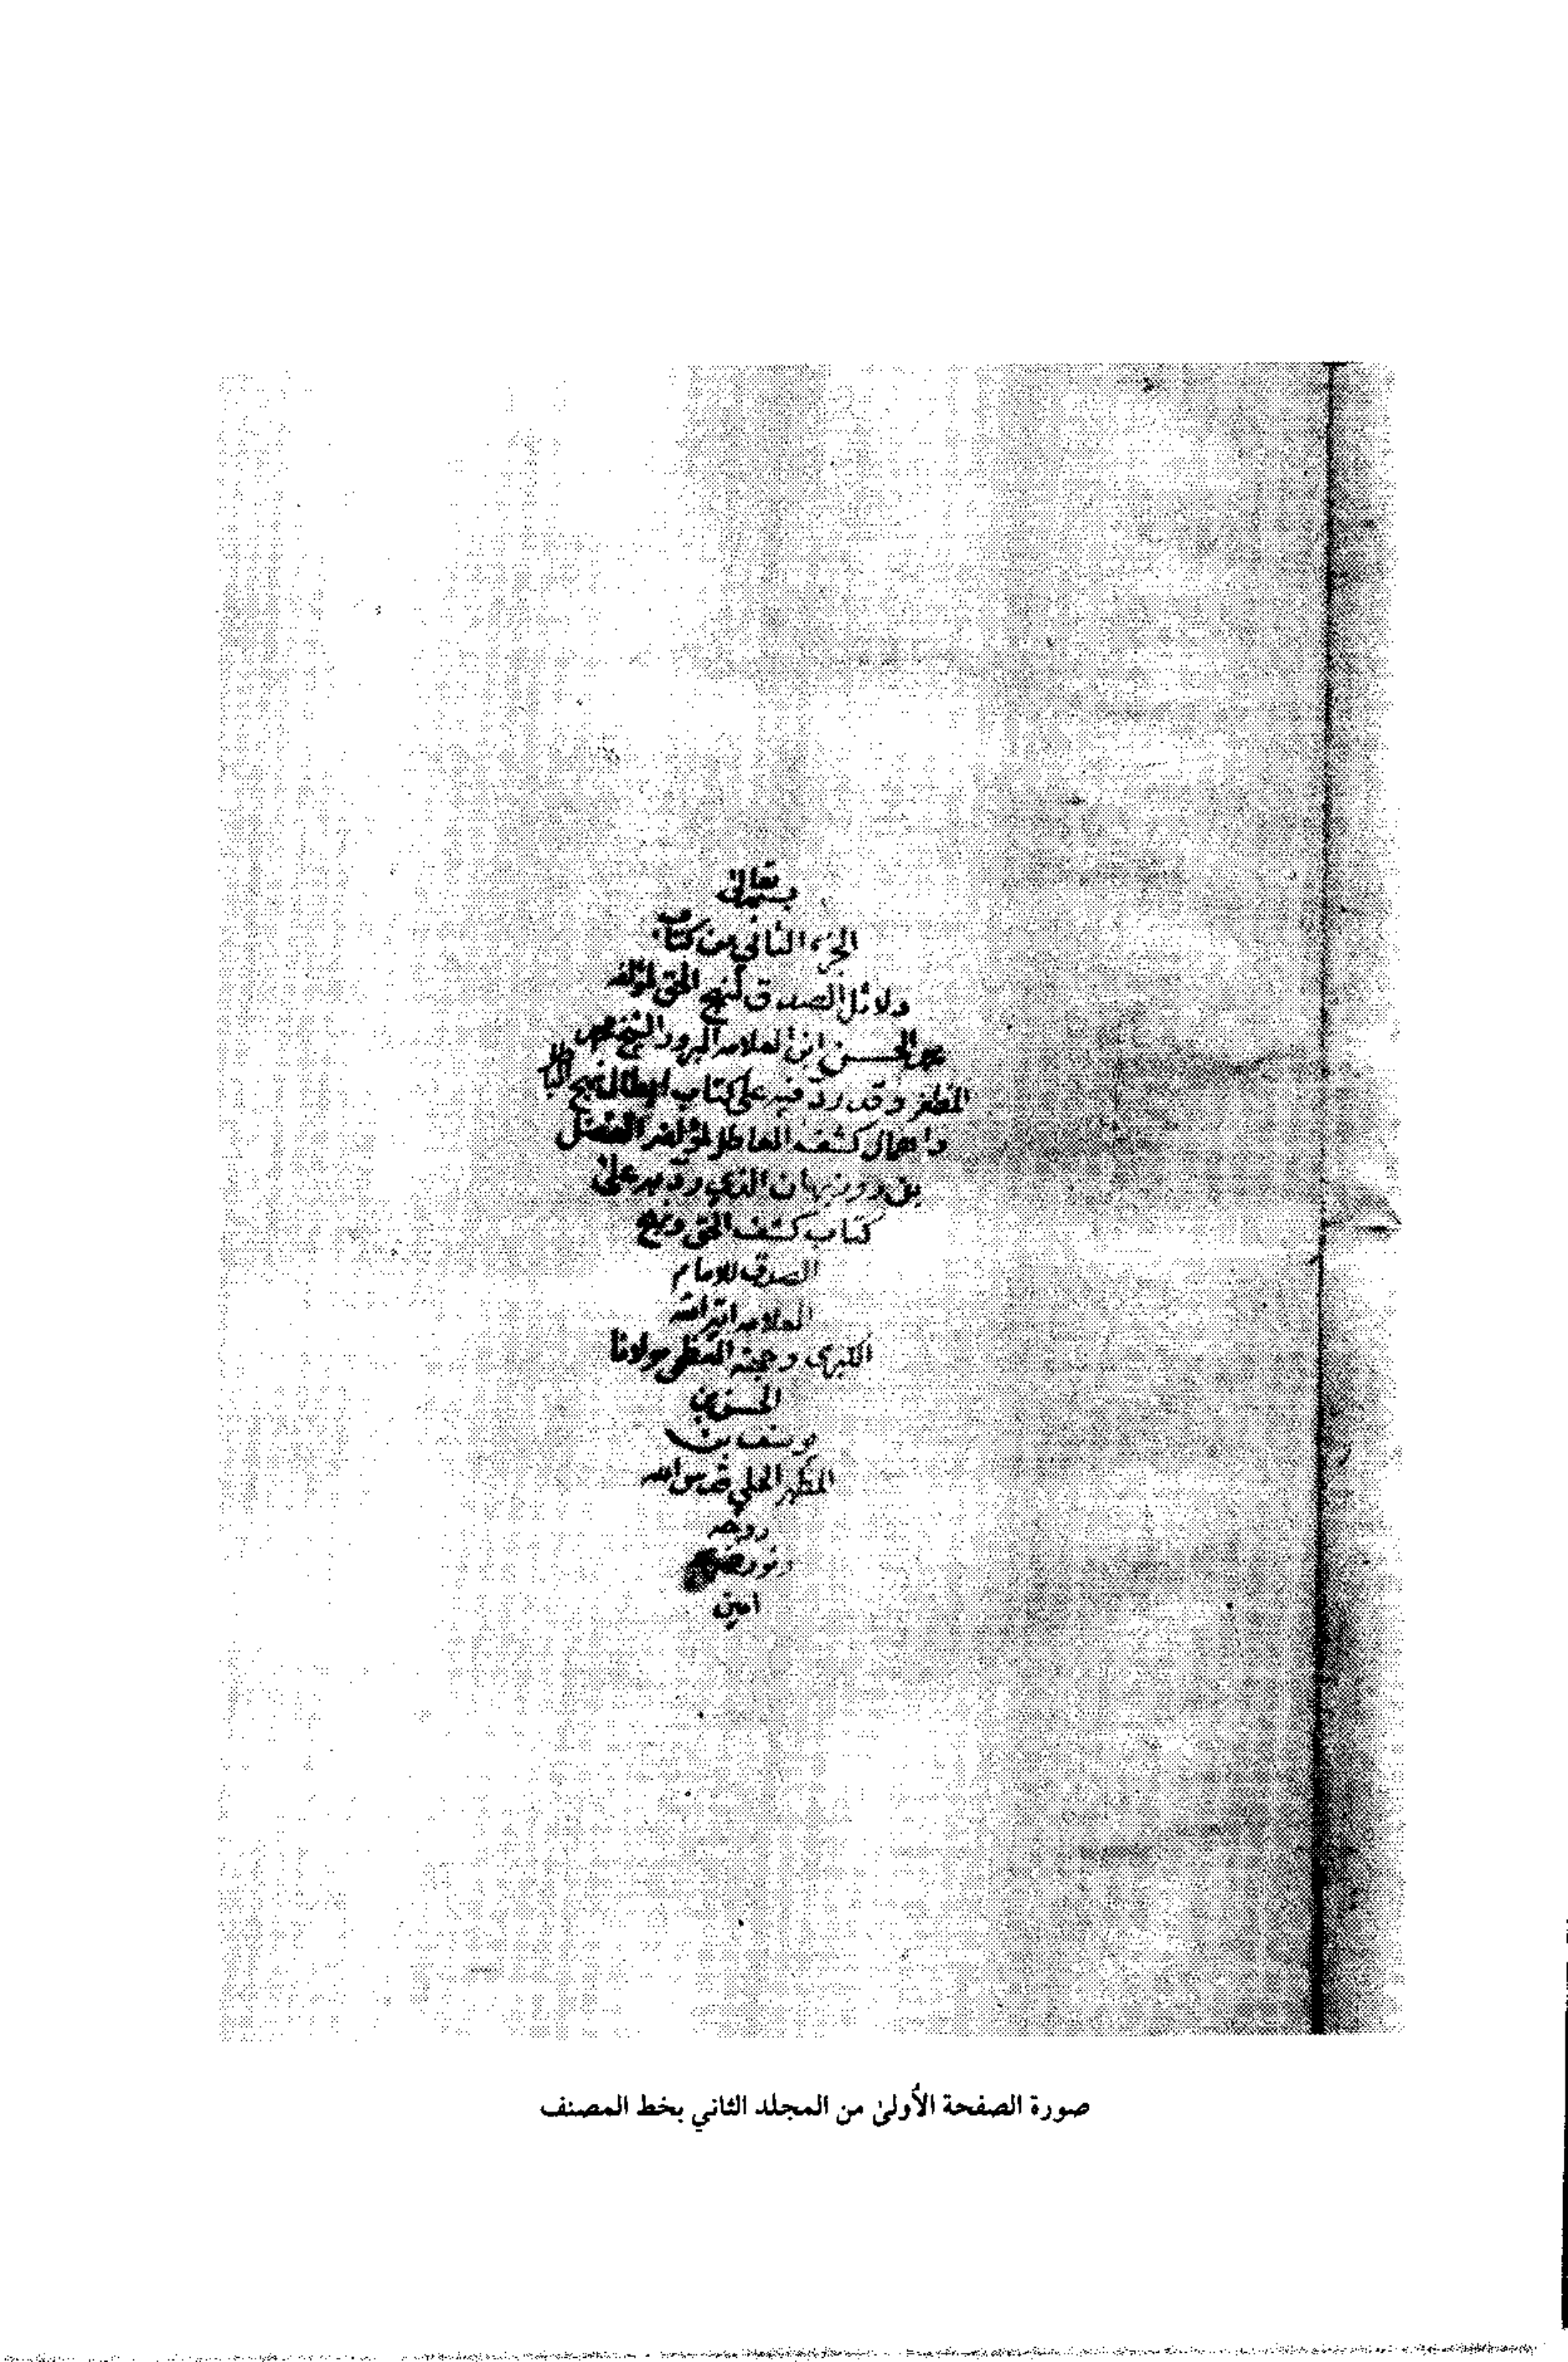 بسمه تعالى
الجزء الثاني من كتاب
دلائل الصدق لنهج الحق لمؤلفه
محمد الحسن ابن العلامه المبرور الشيخ محمد
المظفر وقد ردّ فيه على كتاب ابطال نهج الباطل
واهمال كشف العاطل لمؤلفه الفضل
بن روزبهان الذي ردّ به على
كتاب كشف الحق ونهج
الصدق للامام
العلامه اية الله
الكبرى وحجته العظمى مولانا
الحسن بن
يوسف بن
المطهر الحلي قدس الله
روحه
ونور ضريحه
امين
صورة الصفحة الأُولىٰ من المجلد الثاني بخط المصنف